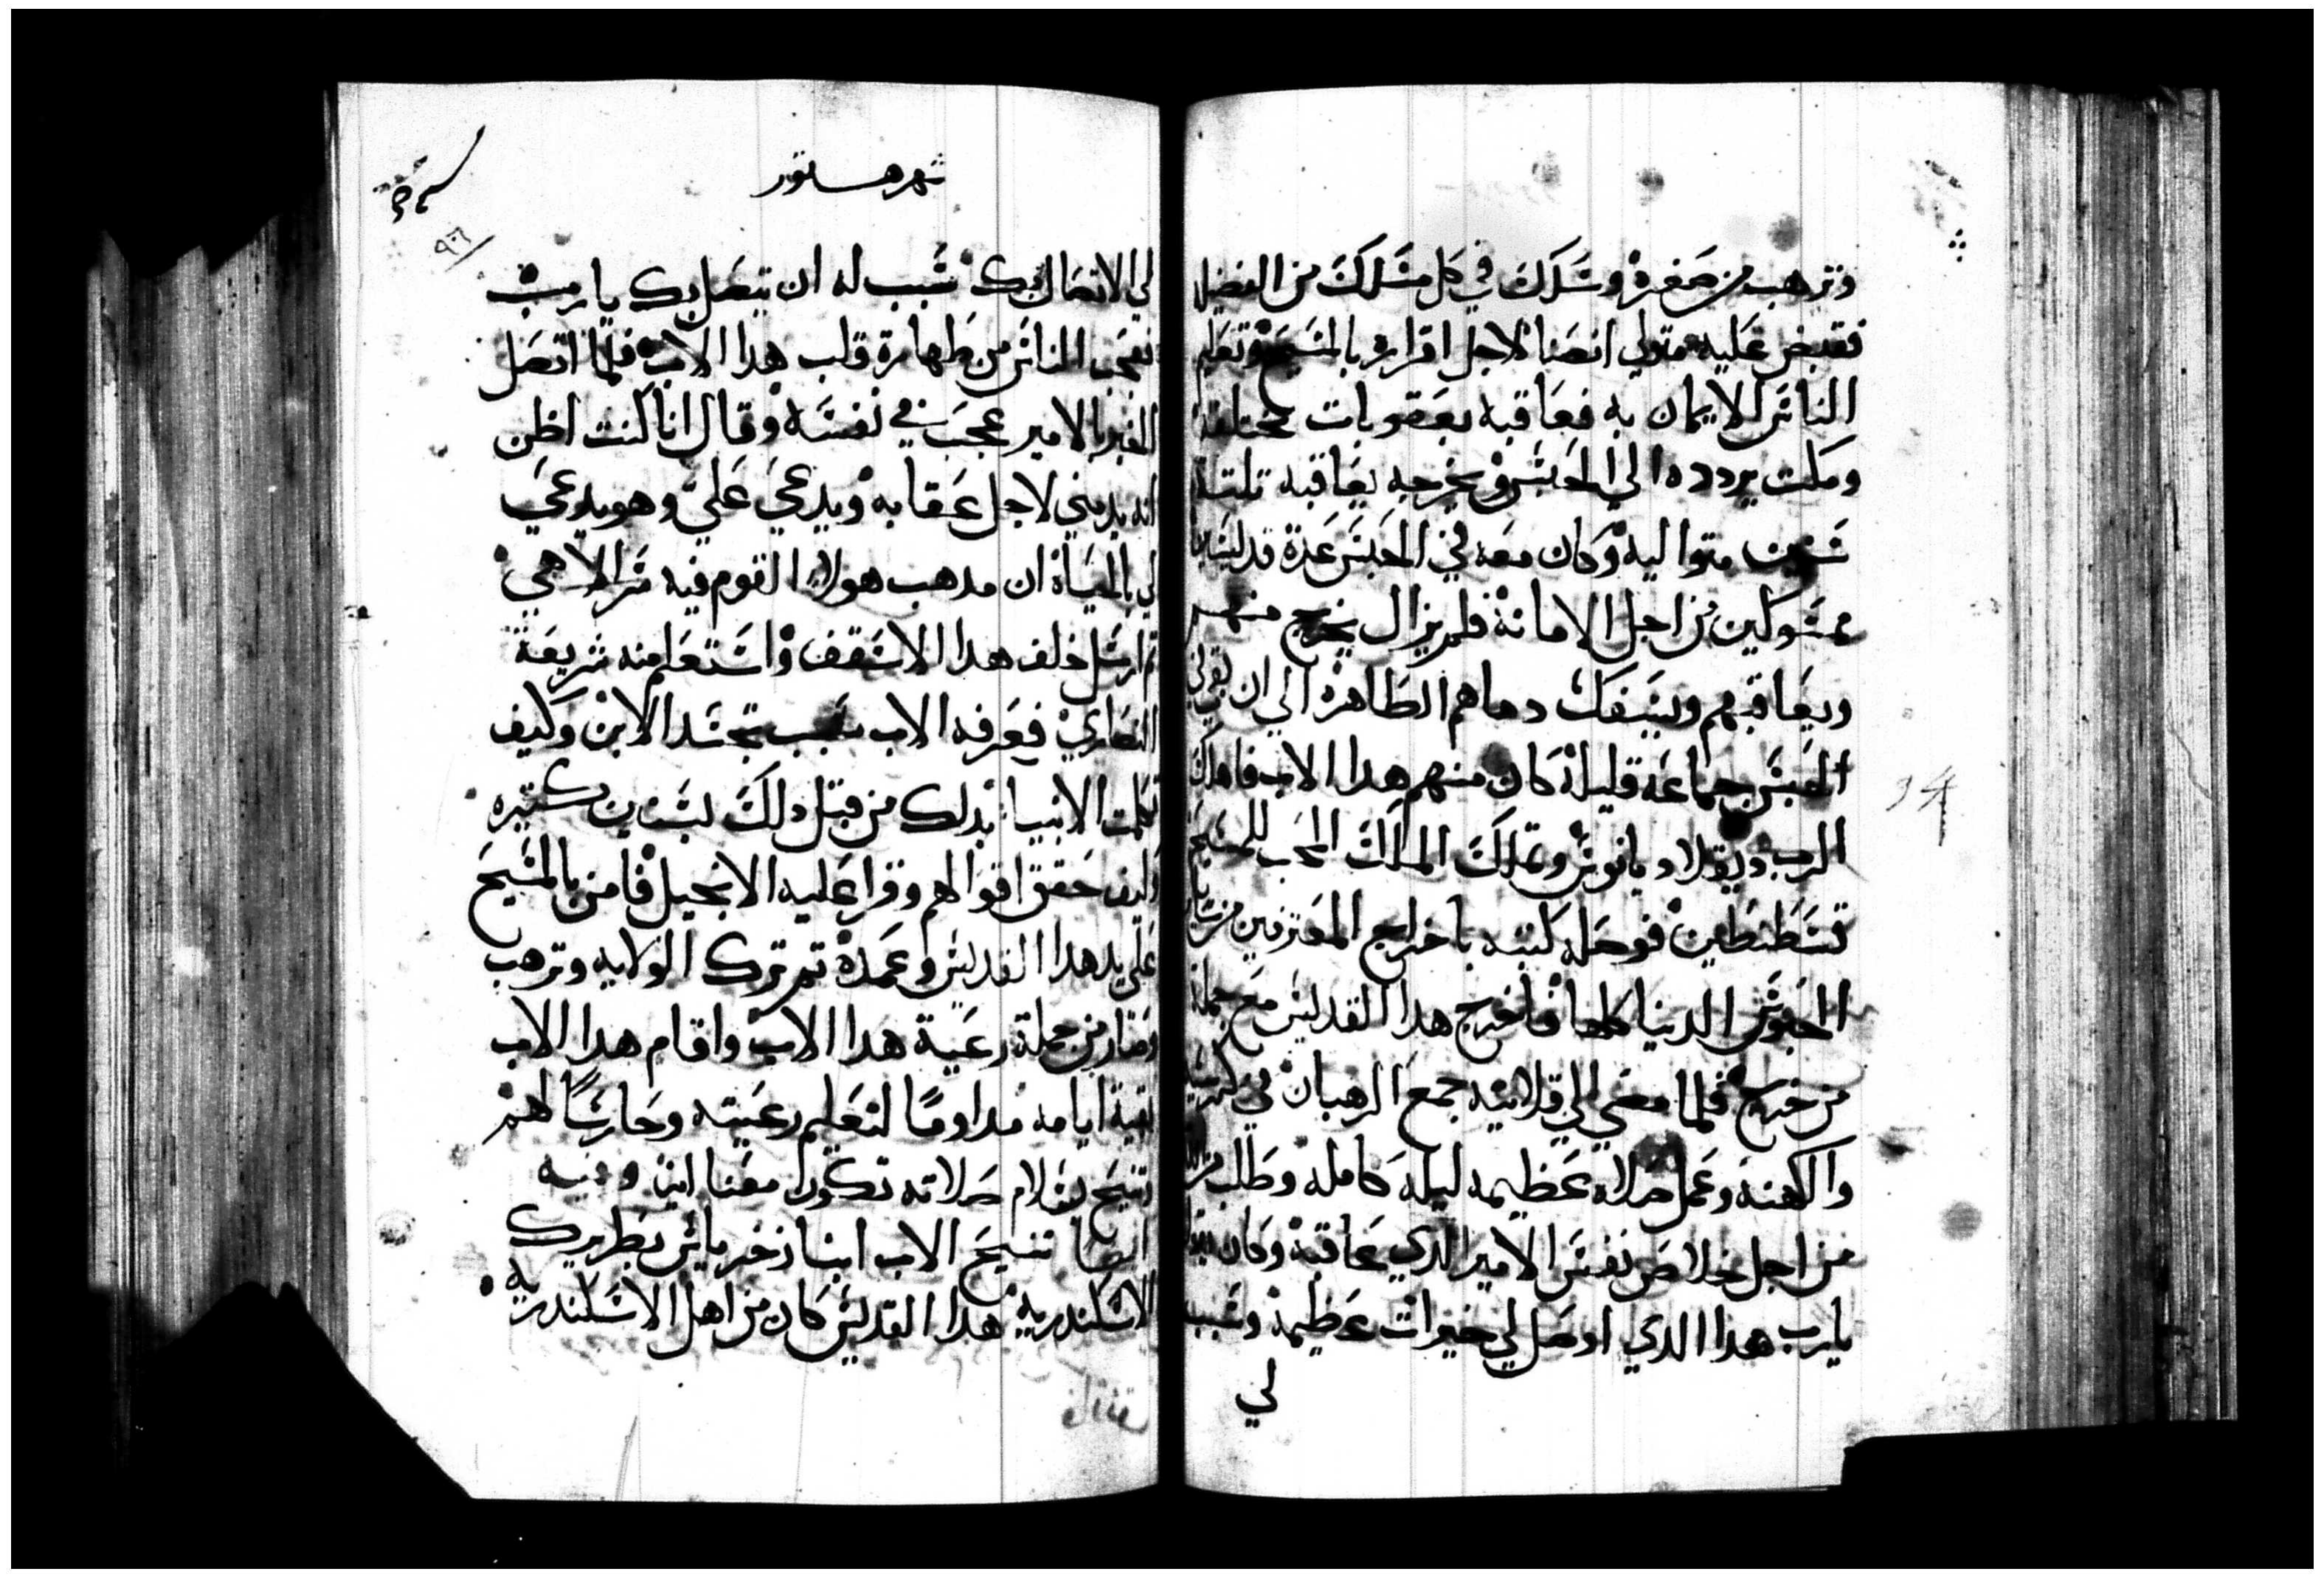 وترهب من صغره وسلك في كل مسلك من الفضيله
فقبض عليه متولي انصنا لاجل اقراره بالمسيح وتعليم
الناس الايمان به فعاقبه بعقوبات مختلفه
ومكت يردده الي الحبس ويخرجه يعاقبه تلتة
سنين متواليه وكان معه في الحبس عدة قديسين
ممسوكين من اجل الامانة فلم يزال يخرج منهم
ويعاقبهم ويسفك دماهم الطاهرة الي ان بقي في
الحبس جماعة قليلة كان منهم هدا الاب فاهلك
الرب ديقلاديانوس وتملك الملك المحب للمسيح
قسطنطين فوصله كتبه باخراج المعترفين من ساير
الحبوس الدنيا كلها فاخرج هدا القديس مع جملة
من خرج فلما مضي الي قلايته جمع الرهبان في
والكهنة وعمل صلاه عظيمه ليله كامله وطلب من
من اجل خلاص نفس الامير الدي عاقبة وكان يقول
يارب هدا الدي اوصل لي خيرات عظيمة وسبب
لي
شهر هستور
٩٦
لي الاتصال بك سبب له ان يتصل بك يارب
فعجب الناس من طهارة قلب هدا الاب فلما اتصل
الخبر بالامير عجب في نفسه وقال انا كنت اظن
انه يدمني لاجل عقابه ويدعي علي وهو يدعي
لي بالحياة ان مدهب هولاء القوم فيه سر الاهي
تم ارسل خلف هدا الاسقف واستعلم منه شريعة
النصاري فعرفه الاب سبب تجسد الابن وكيف
تكلمت الانبيا بدلك من قبل دلك بسنين كتيره
وكيف حقق اقوالهم وقرا عليه الانجيل فامن بالمسيح
علي يد هدا القديس وعمدة تم ترك الولايه وترهب
وصار من جملة رعية هدا الاب واقام هدا الاب
بقية ايامه مداومًا لتعليم رعيته وحارسًا لهم
وتنيح بسلام صلاته تكون معنا امين وفيه
ايضا تنيح الاب انبا زخرياس بطريرك
الاسكندرية هدا القديس كان من اهل الاسكندريه